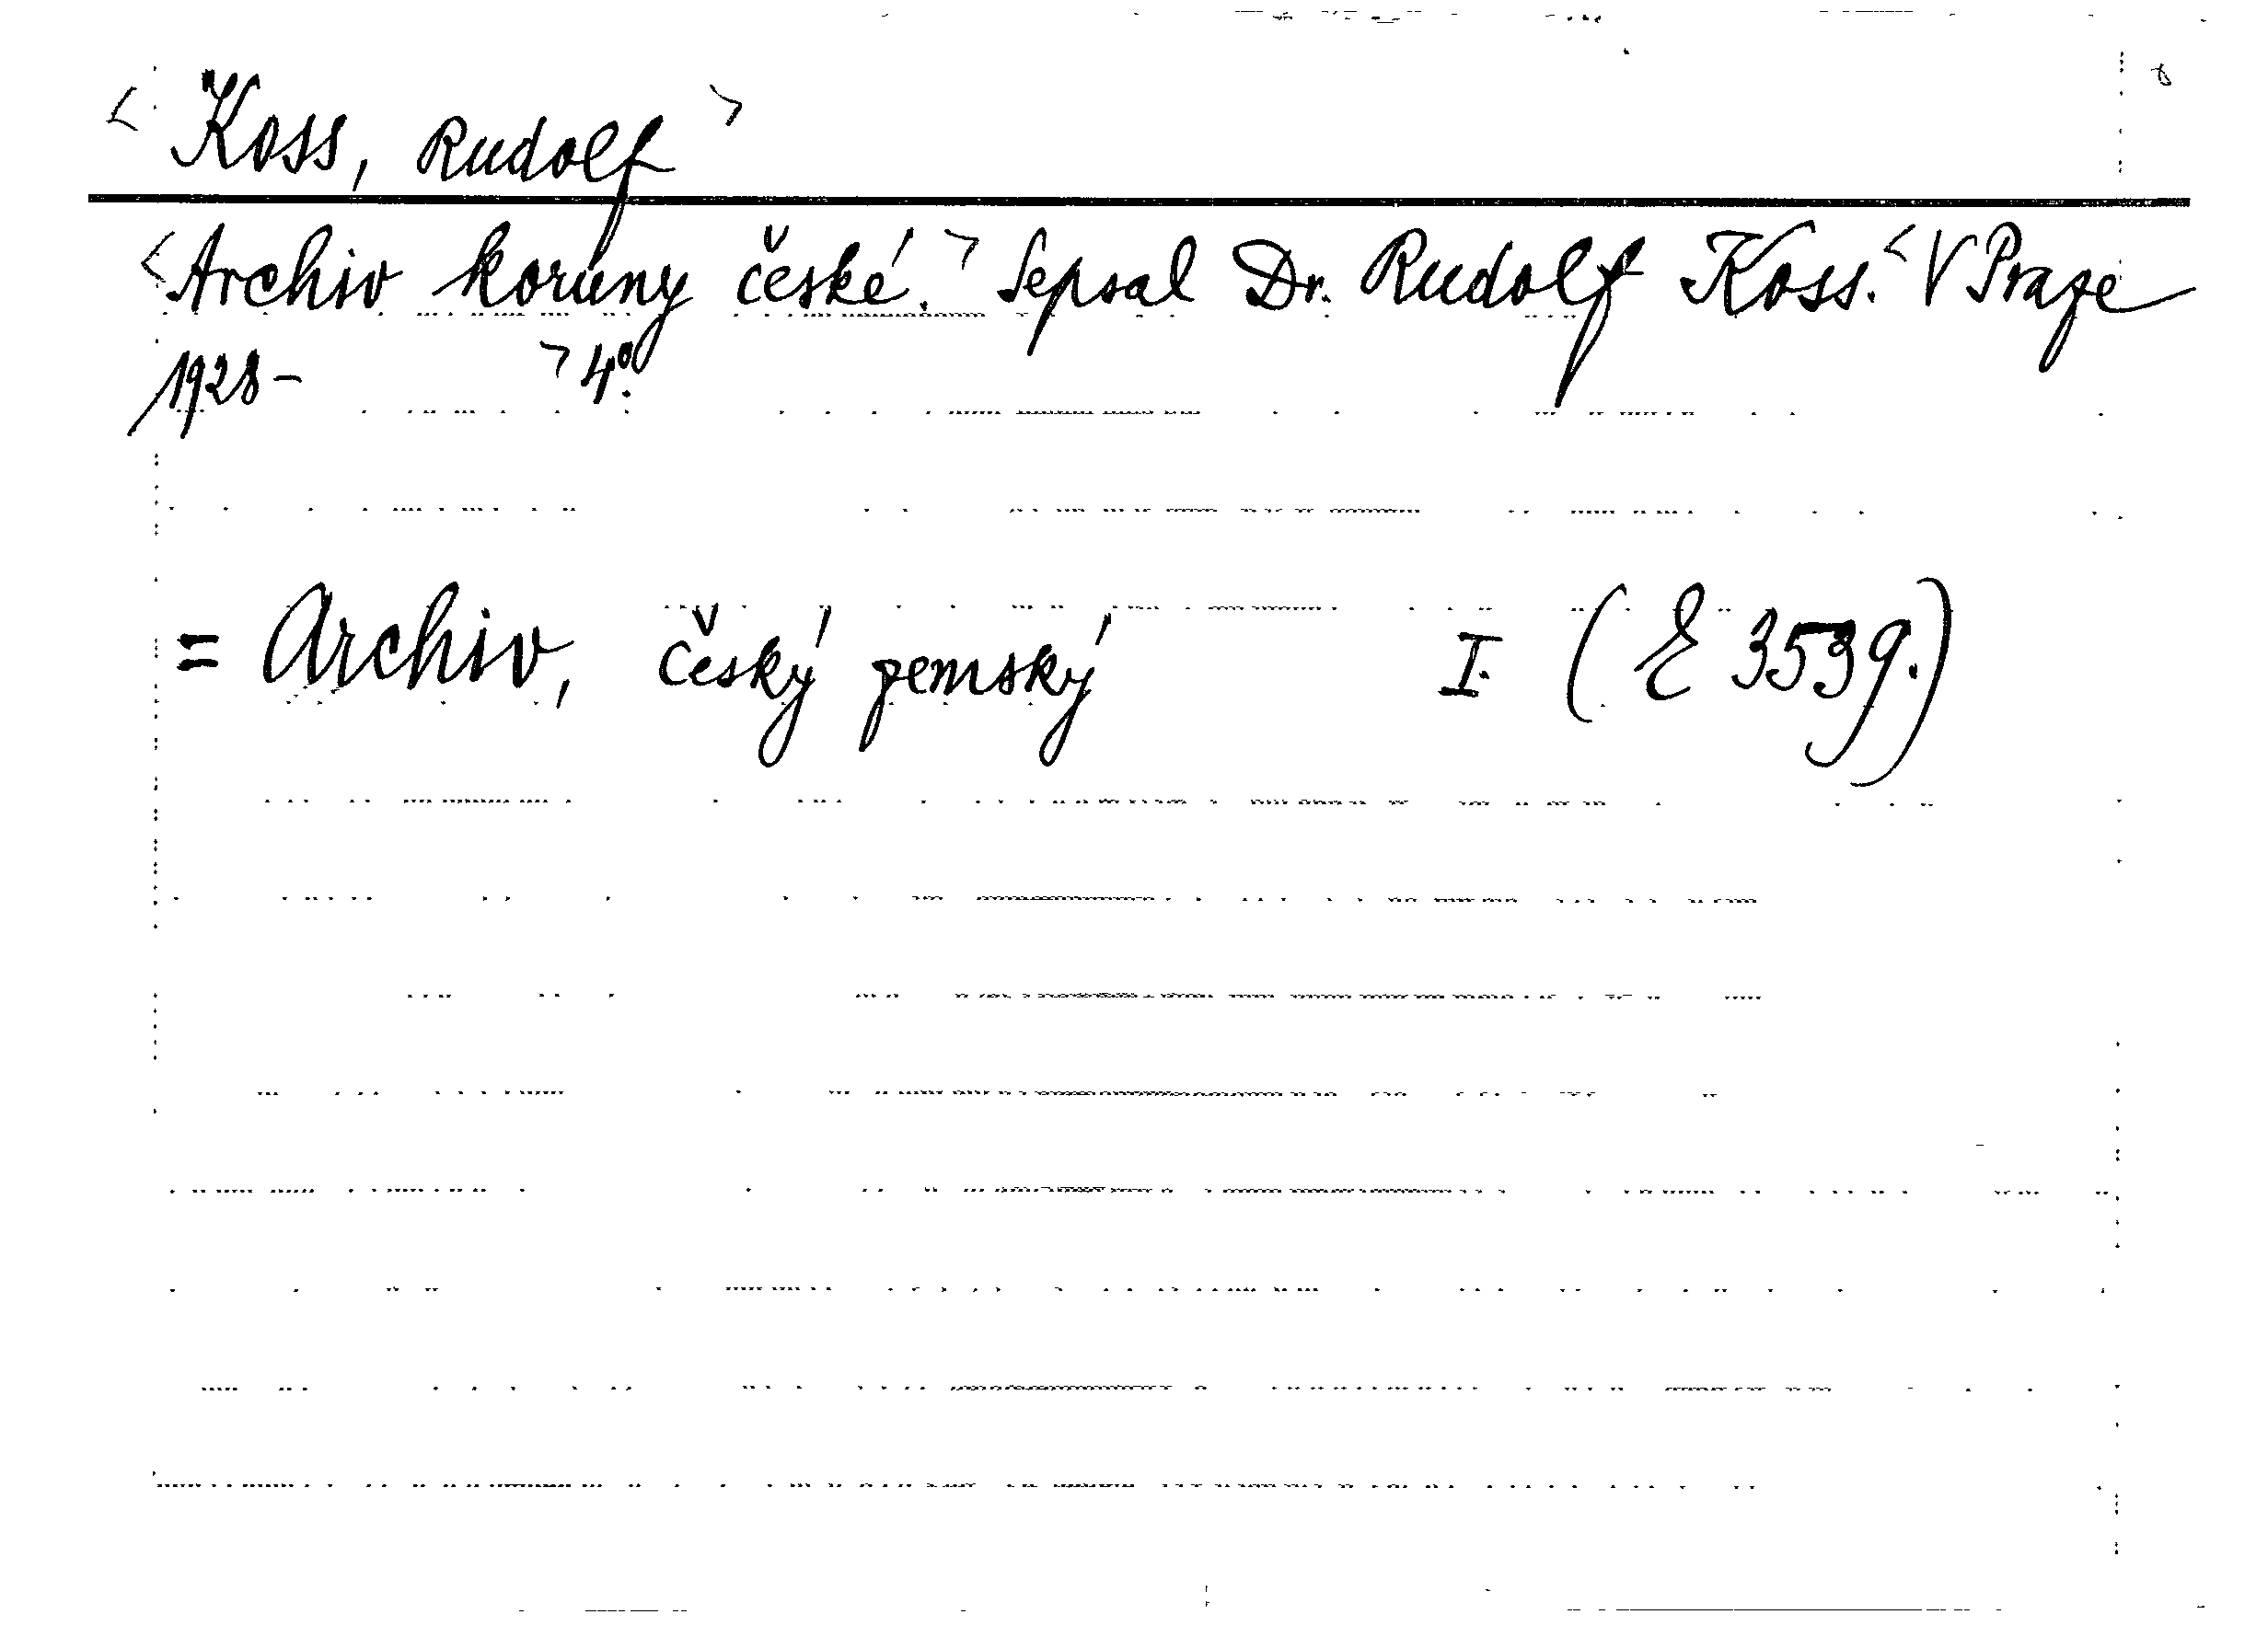 < Koss, Rudolf >
< Archiv koruny české. > Sepsal Dr. Rudolf Koss. < V Praze
1928 – > 4º.
= Archiv, český zemský I. (E 3539.)